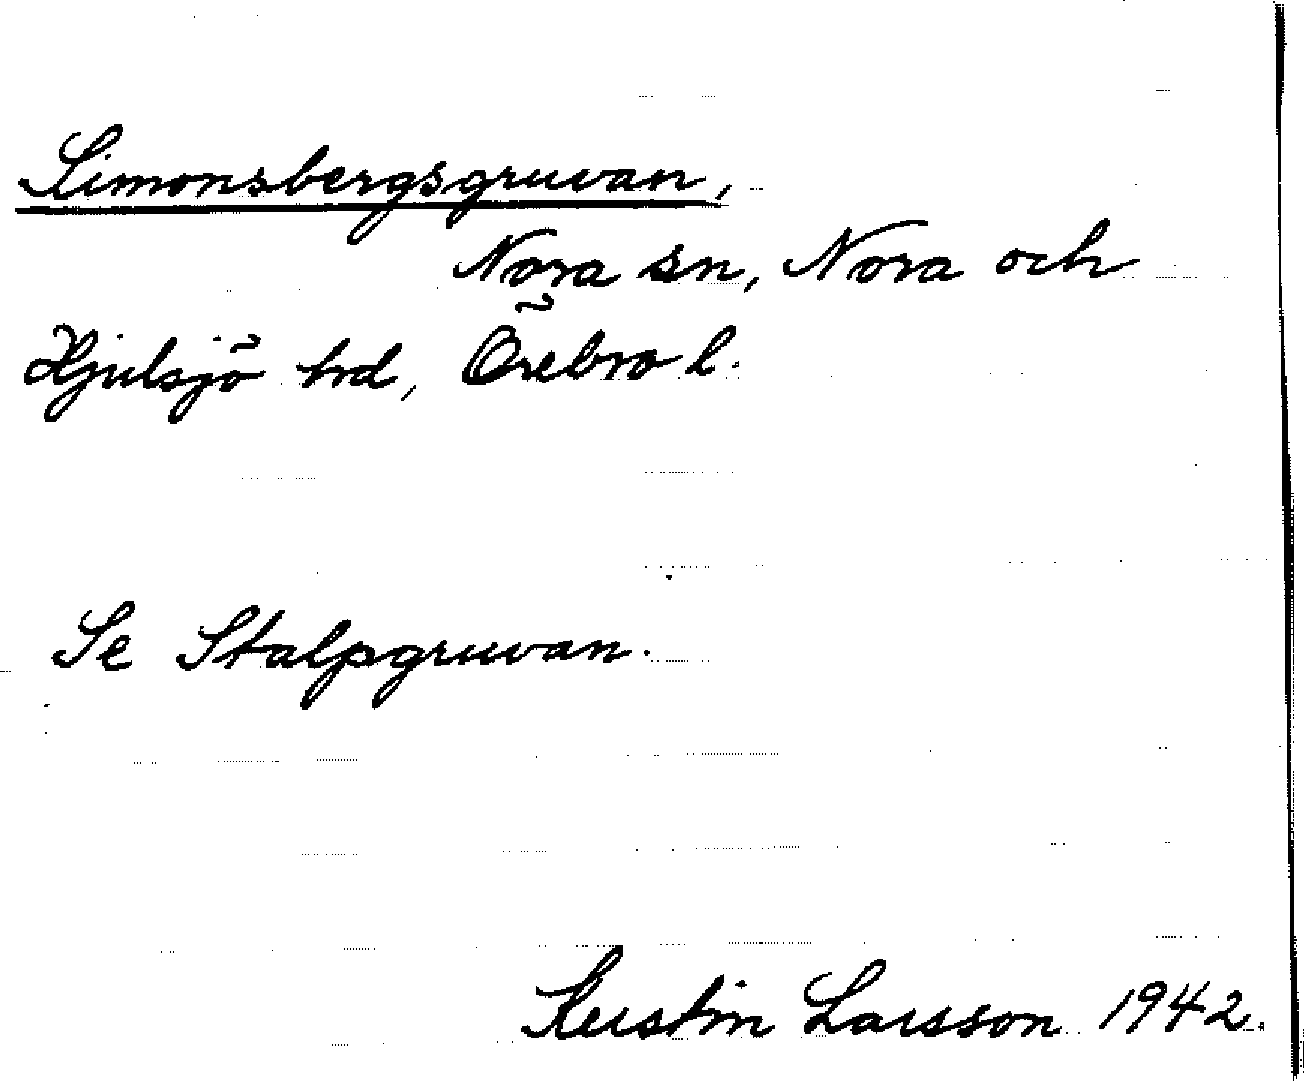 Simonsbergsgruvan,
Nora sn, Nora och
Hjulsjö hrd, Örebro l.
Se Stalpgruvan.
Kerstin Larsson 1942.